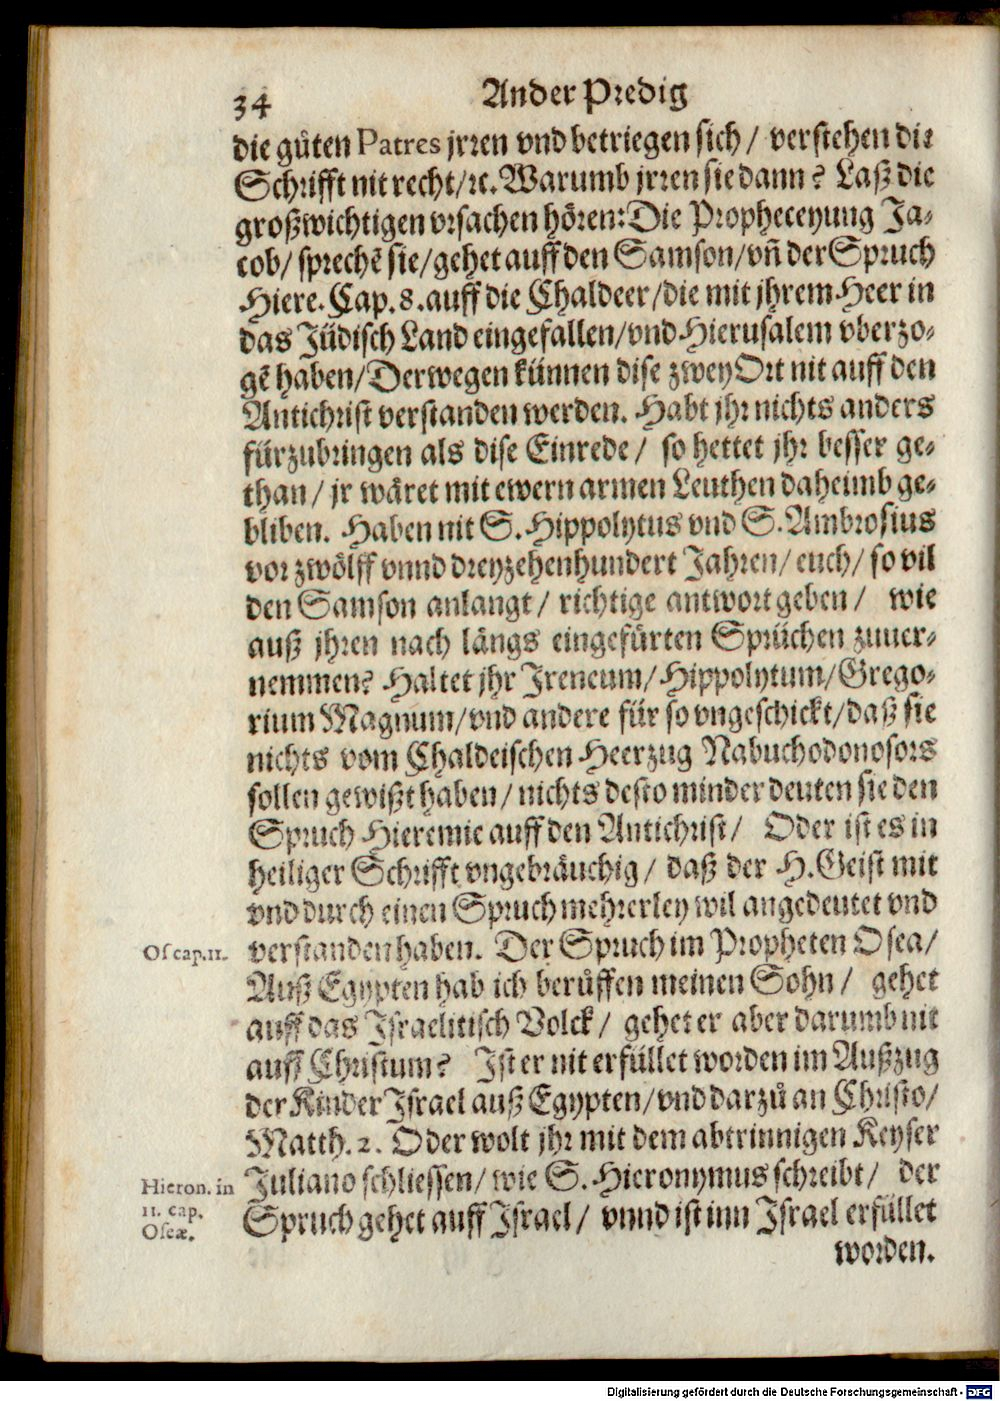 34
Ander Predig
die gůten Patres jrren vnd betriegen sich/ verstehen die
Schrifft nit recht/ꝛc. Warumb jrren sie dann? Laß die
großwichtigen vrsachen hören: Die Propheceyung Ja-
cob/ sprechẽ sie/ gehet auff den Samson/ vñ der Spruch
Hiere. Cap. 8. auff die Chaldeer/ die mit jhrem Heer in
das Jüdisch Land eingefallen/ vnd Hierusalem vberzo-
gẽ haben/ Derwegen künnen dise zwey Ort nit auff den
Antichrist verstanden werden. Habt jhr nichts anders
fürzubringen als dise Einrede/ so hettet jhr besser ge-
than/ jr wäret mit ewern armen Leuthen daheimb ge-
bliben. Haben nit S. Hippolytus vnd S. Ambrosius
vor zwölff vnnd dreyzehenhundert Jahren/ euch/ so vil
den Samson anlangt/ richtige antwort geben/ wie
auß jhren nach längs eingefürten Sprüchen zuuer-
nemmen? Haltet jhr Ireneum/ Hippolytum/ Grego-
rium Magnum/ vnd andere für so vngeschickt/ daß sie
nichts vom Chaldeischen Heerzug Nabuchodonosors
sollen gewißt haben/ nichts desto minder deuten sie den
Spruch Hieremie auff den Antichrist/ Oder ist es in
heiliger Schrifft vngebräuchig/ daß der H. Geist mit
vnd durch einen Spruch mehrerley wil angedeutet vnd
Os cap. 11.
verstanden haben. Der Spruch im Propheten Osea/
Auß Egypten hab ich berůffen meinen Sohn/ gehet
auff das Israelitisch Volck/ gehet er aber darumb nit
auff Christum? Ist er nit erfüllet worden im Außzug
der Kinder Israel auß Egypten/ vnd darzů an Christo/
Matth. 2. Oder wolt jhr mit dem abtrinnigen Keyser
Hieron. in
11. cap.
Oseæ.
Juliano schliessen/ wie S. Hieronymus schreibt/ der
Spruch gehet auff Israel/ vnnd ist inn Israel erfüllet
worden.
Digitalisierung gefördert durch die Deutsche Forschungsgemeinschaft - DFG